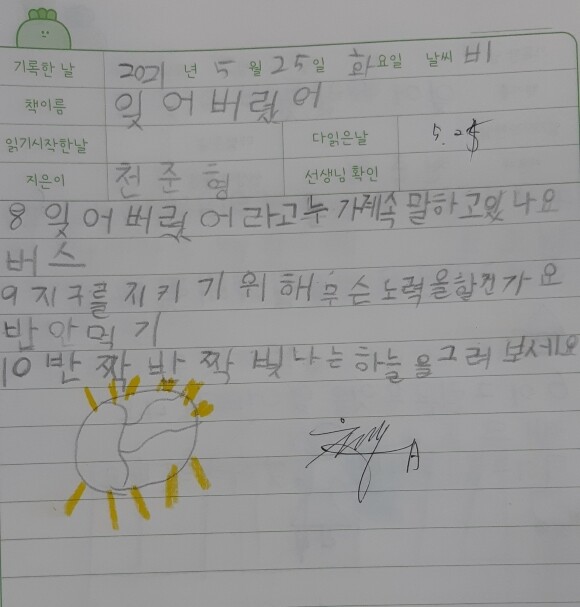 기록한 날 2021 년 5 월 25 일 화 요일 날씨 비
책이름 잊어버렸어
읽기시작한날 다읽은날 5. 25
지은이 천준형 선생님 확인
8 잊어버렸어라고 누가계속 말하고있나요
버스
9 지구를 지키기 위해 무슨 노력을할건가요
밥 안먹기
10 반짝 반짝 빛나는 하늘을 그려 보세요
A